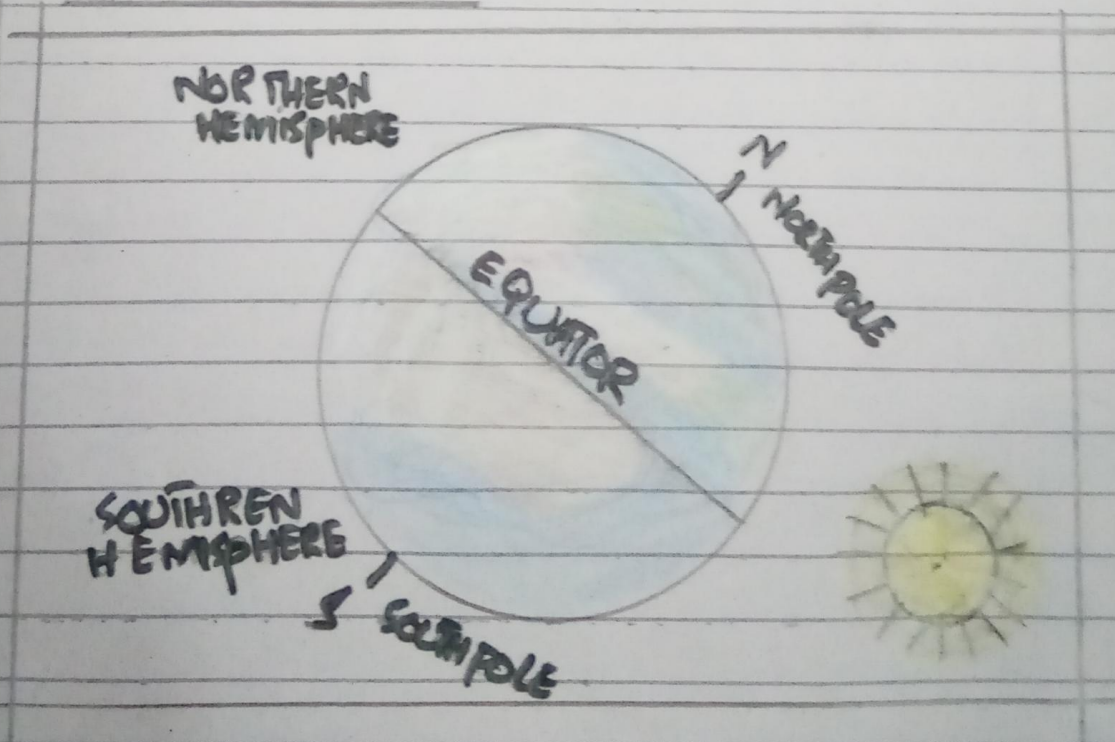 NORTHERN
HEMISPHERE
N
NORTH POLE
EQUATOR
SOUTHREN
HEMISPHERE
S
SOUTH POLE